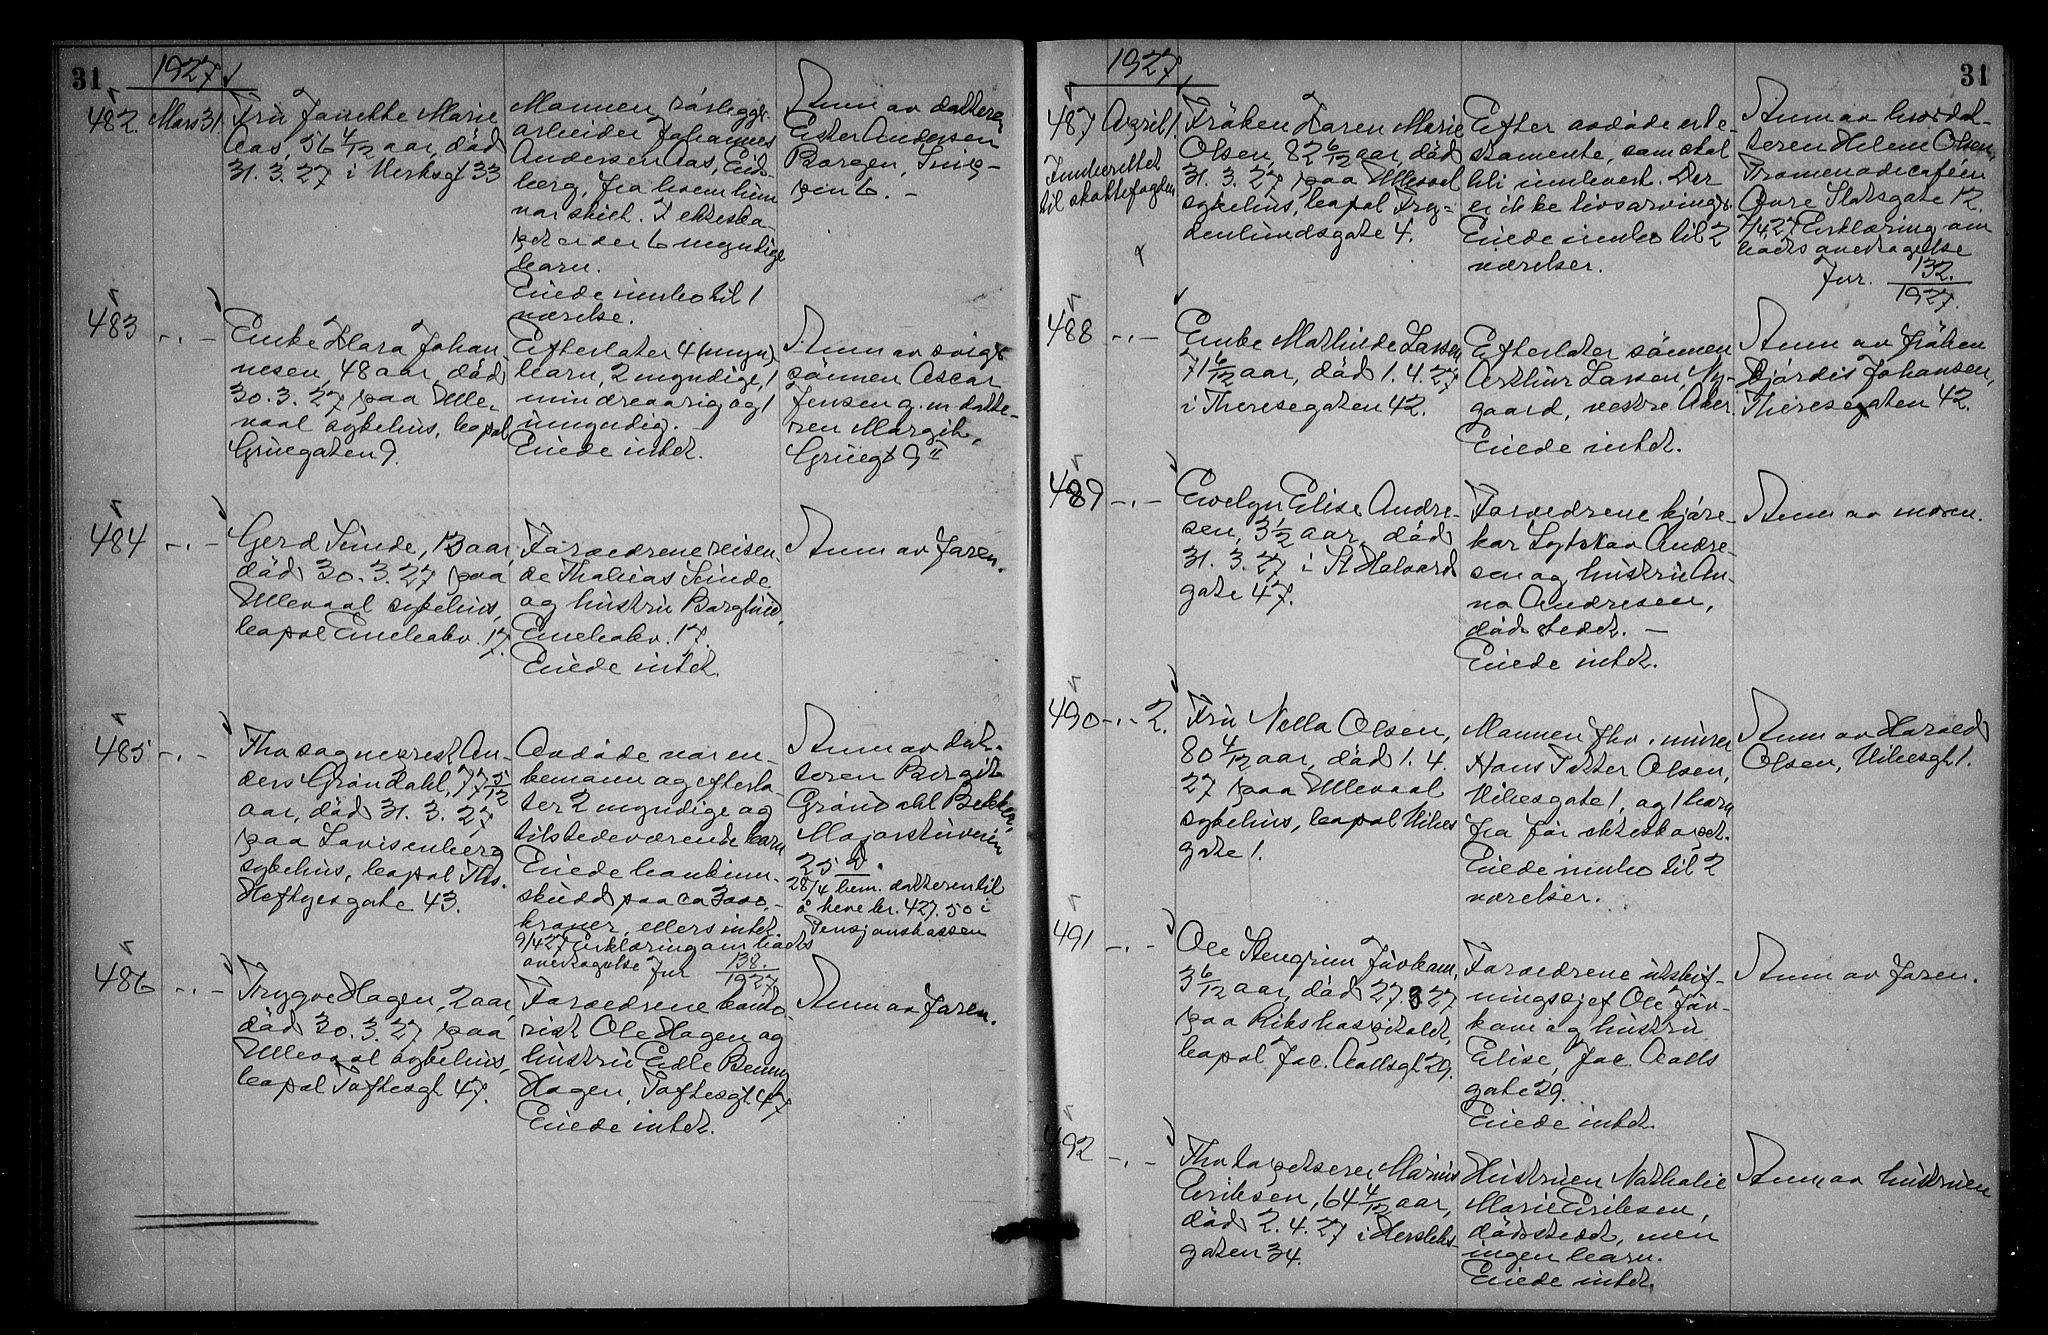 31
1927
482. Mars 31.
Fru Janette Marie
Aas, 56 4/12 aar, död
31. 3. 27 i Verksgt 33
Mannen, rörleggr.
arbeider Johannes
Andersen Aas, Eids-
berg, fra hvem hun
var skilt. I ekteska-
pet er der 6 myndige
barn.
Eiede innbo til 1
værelse.
Anm av datteren
Ester Andersen
Borgen,
6. -
483 -.-
Enke Klara Johan-
nesen, 48 aar, död
30. 3. 27 paa Ulle-
vaal sykehus, bopæl
Grüegaten 9.
Efterlater 4 (umyn)
barn, 2 myndige, 1
mindreaarig og 1
umyndig. -
Eiede intet.
Anm av sviger-
sönnen Oscar
Jensen g. m datte-
ren Margit,
Grüegt 9 II
484 -.-
Gerd Sunde, 13 aar,
död 30. 3. 27 paa
Ullevaal sykehus,
bopæl Enebakv. 17.
Foreldrene reisen-
de Thobias Sunde
og hustru Borghild,
Enebakv. 17.
Eiede intet.
Anm av faren.
485 -.-
Fhv sogneprest An-
ders Gröndahl, 77 5/12
aar, död 31. 3. 27
paa Lovisenberg
sykehus, bopæl Ths.
Heftyesgate 43.
Avdöde var en-
kemann og efterla-
ter 2 myndige og
tilstedeværende barn
Eiede bankinn-
skudd paa ca 3000,-
kroner, ellers intet.
9/4 27 Erklæring om bodts
overtagelse Jnr 138./1927
Anm av dat-
teren Borgit
Gröndahl Bekker,
Majorstuveien
25 .
28/4 bem. datteren til
å heve kr. 427.50 i
Pensjonskassen
486 -.-
Trygve Hagen, 2 aar,
död 30. 3. 27 paa
Ullevaal sykehus,
bopæl Toftesgt 47.
Foreldrene konto-
rist Ole Hagen og
hustru Edle Benny
Hagen, Toftesgt 47
Eiede intet.
Anm av faren.
31
1927
487 April 1.
Innberettet
til skattefogden
Fröken Karen Marie
Olsen, 82 6/12 aar, död
31. 3. 27 paa Ullevol
sykehus, bopæl Frog-
delundsgate 4.
Efter avdöde er te-
stamente, som skal
bli innlevert. Der
er ikke livsarvinger.
Eiede innbo til 2
værelser.
Anm av brordat-
teren Helene Olsen,
Promenadecaféen
Övre Slotsgate 12.
7/4 27 Erklæring om
bodts overtagelse
Jnr. 132./1927.
488 -.-
Enke Mathilde Larsen
71 6/12 aar, död 1. 4. 27
i Theresegaten 42.
Efterlater sönnen
Arthur Larsen, Ny-
gaard, vestre Aker.
Eiede intet.
Anm av fröken
Hjördis Johansen,
Theresegaten 42.
489 -.-
Evelyn Elise Andre-
sen, 3 1/2 aar, död
31. 3. 27 i St Halvards
gate 47.
Foreldrene kjöre-
kar Andre-
sen og hustru An-
na Andresen,
dödsstedet. -
Eiede intet.
Anm av moren.
490 -.- 2.
Fru Nella Olsen,
80 4/12 aar, död 1. 4.
27 paa Ullevaal
sykehus, bopæl Vibes
gate 1.
Mannen fhv. murer
Hans Petter Olsen,
Vibesgate 1, og 1 barn
fra för ekteskapet.
Eiede innbo til 2
værelser.
Anm av Harald
Olsen, Vibesgt 1.
491 -.-
Ole Stengrim Jövkam,
3 6/12 aar, död 27. 3 27
paa Rikshospitalet,
bopæl Jac. Aallsgt 29.
Foreldrene utskift-
ningssjef Ole Jöv-
kam og hustru
Elise, Jac. Aalls
gate 29.
Eiede intet.
Anm av faren.
492 -.-
Fhv tapetserer Marius
Eriksen, 64 4/12 aar,
död 2. 4. 27 i Herslebs-
gaten 34.
Hustruen Nathalie
Marie Eriksen,
dödsstedet, men
ingen barn.
Eiede intet.
Anm av hustruen